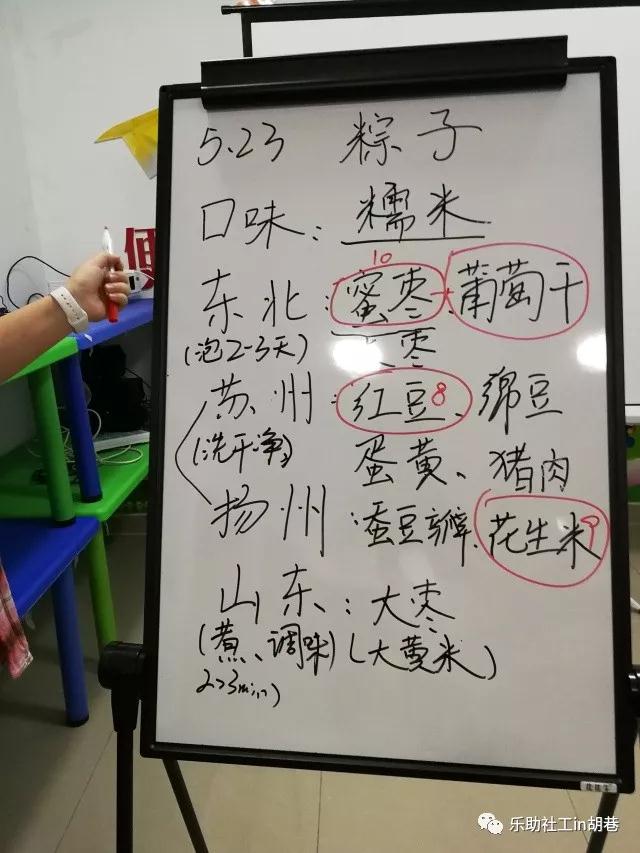 5.23 粽子
口味：糯米
10
东北：蜜枣、葡萄干
(泡2-3天) 枣
苏州：红豆8、绵豆
(洗干净) 蛋黄、猪肉
扬州：蚕豆瓣、花生米9
山东：大枣
(煮、调味)(大黄米)
2>3min)
乐助社工in胡巷